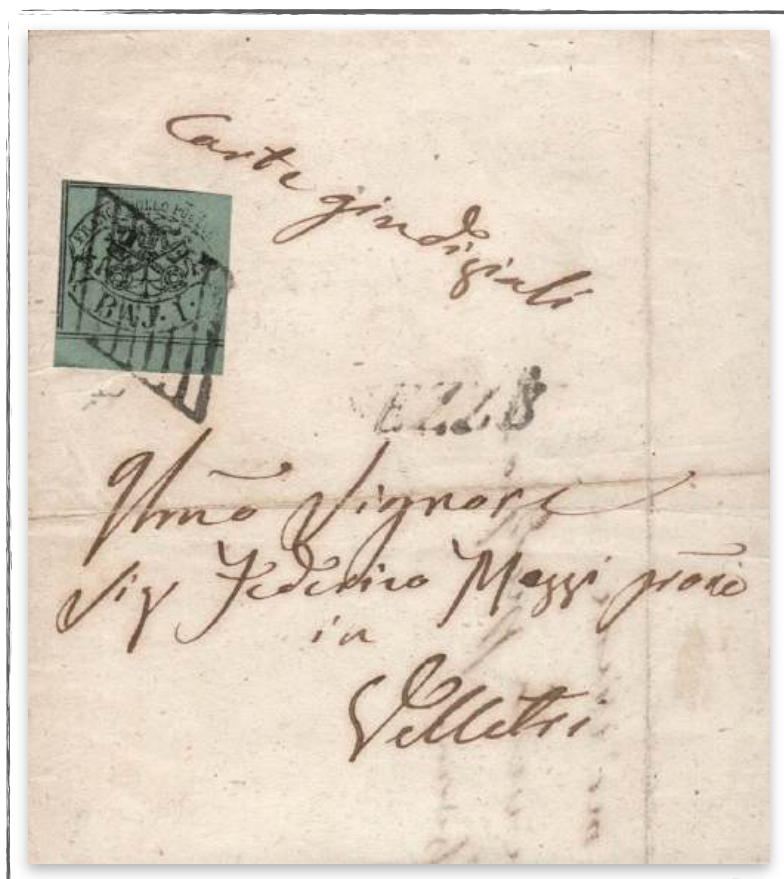 Carte giudiziali
FRANCO BOLLO POSTALE
BAJ. I.
Illmo Signore
Sig Federico Maggi
in
Velletri